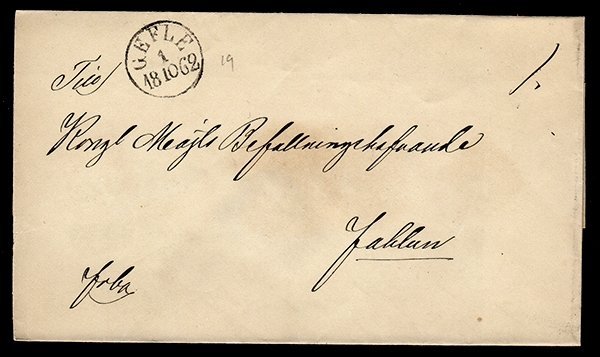 GEFLE
1
18 10 62
19
Till
Kongl Majts Befallningshafvande
Fahlun
frba